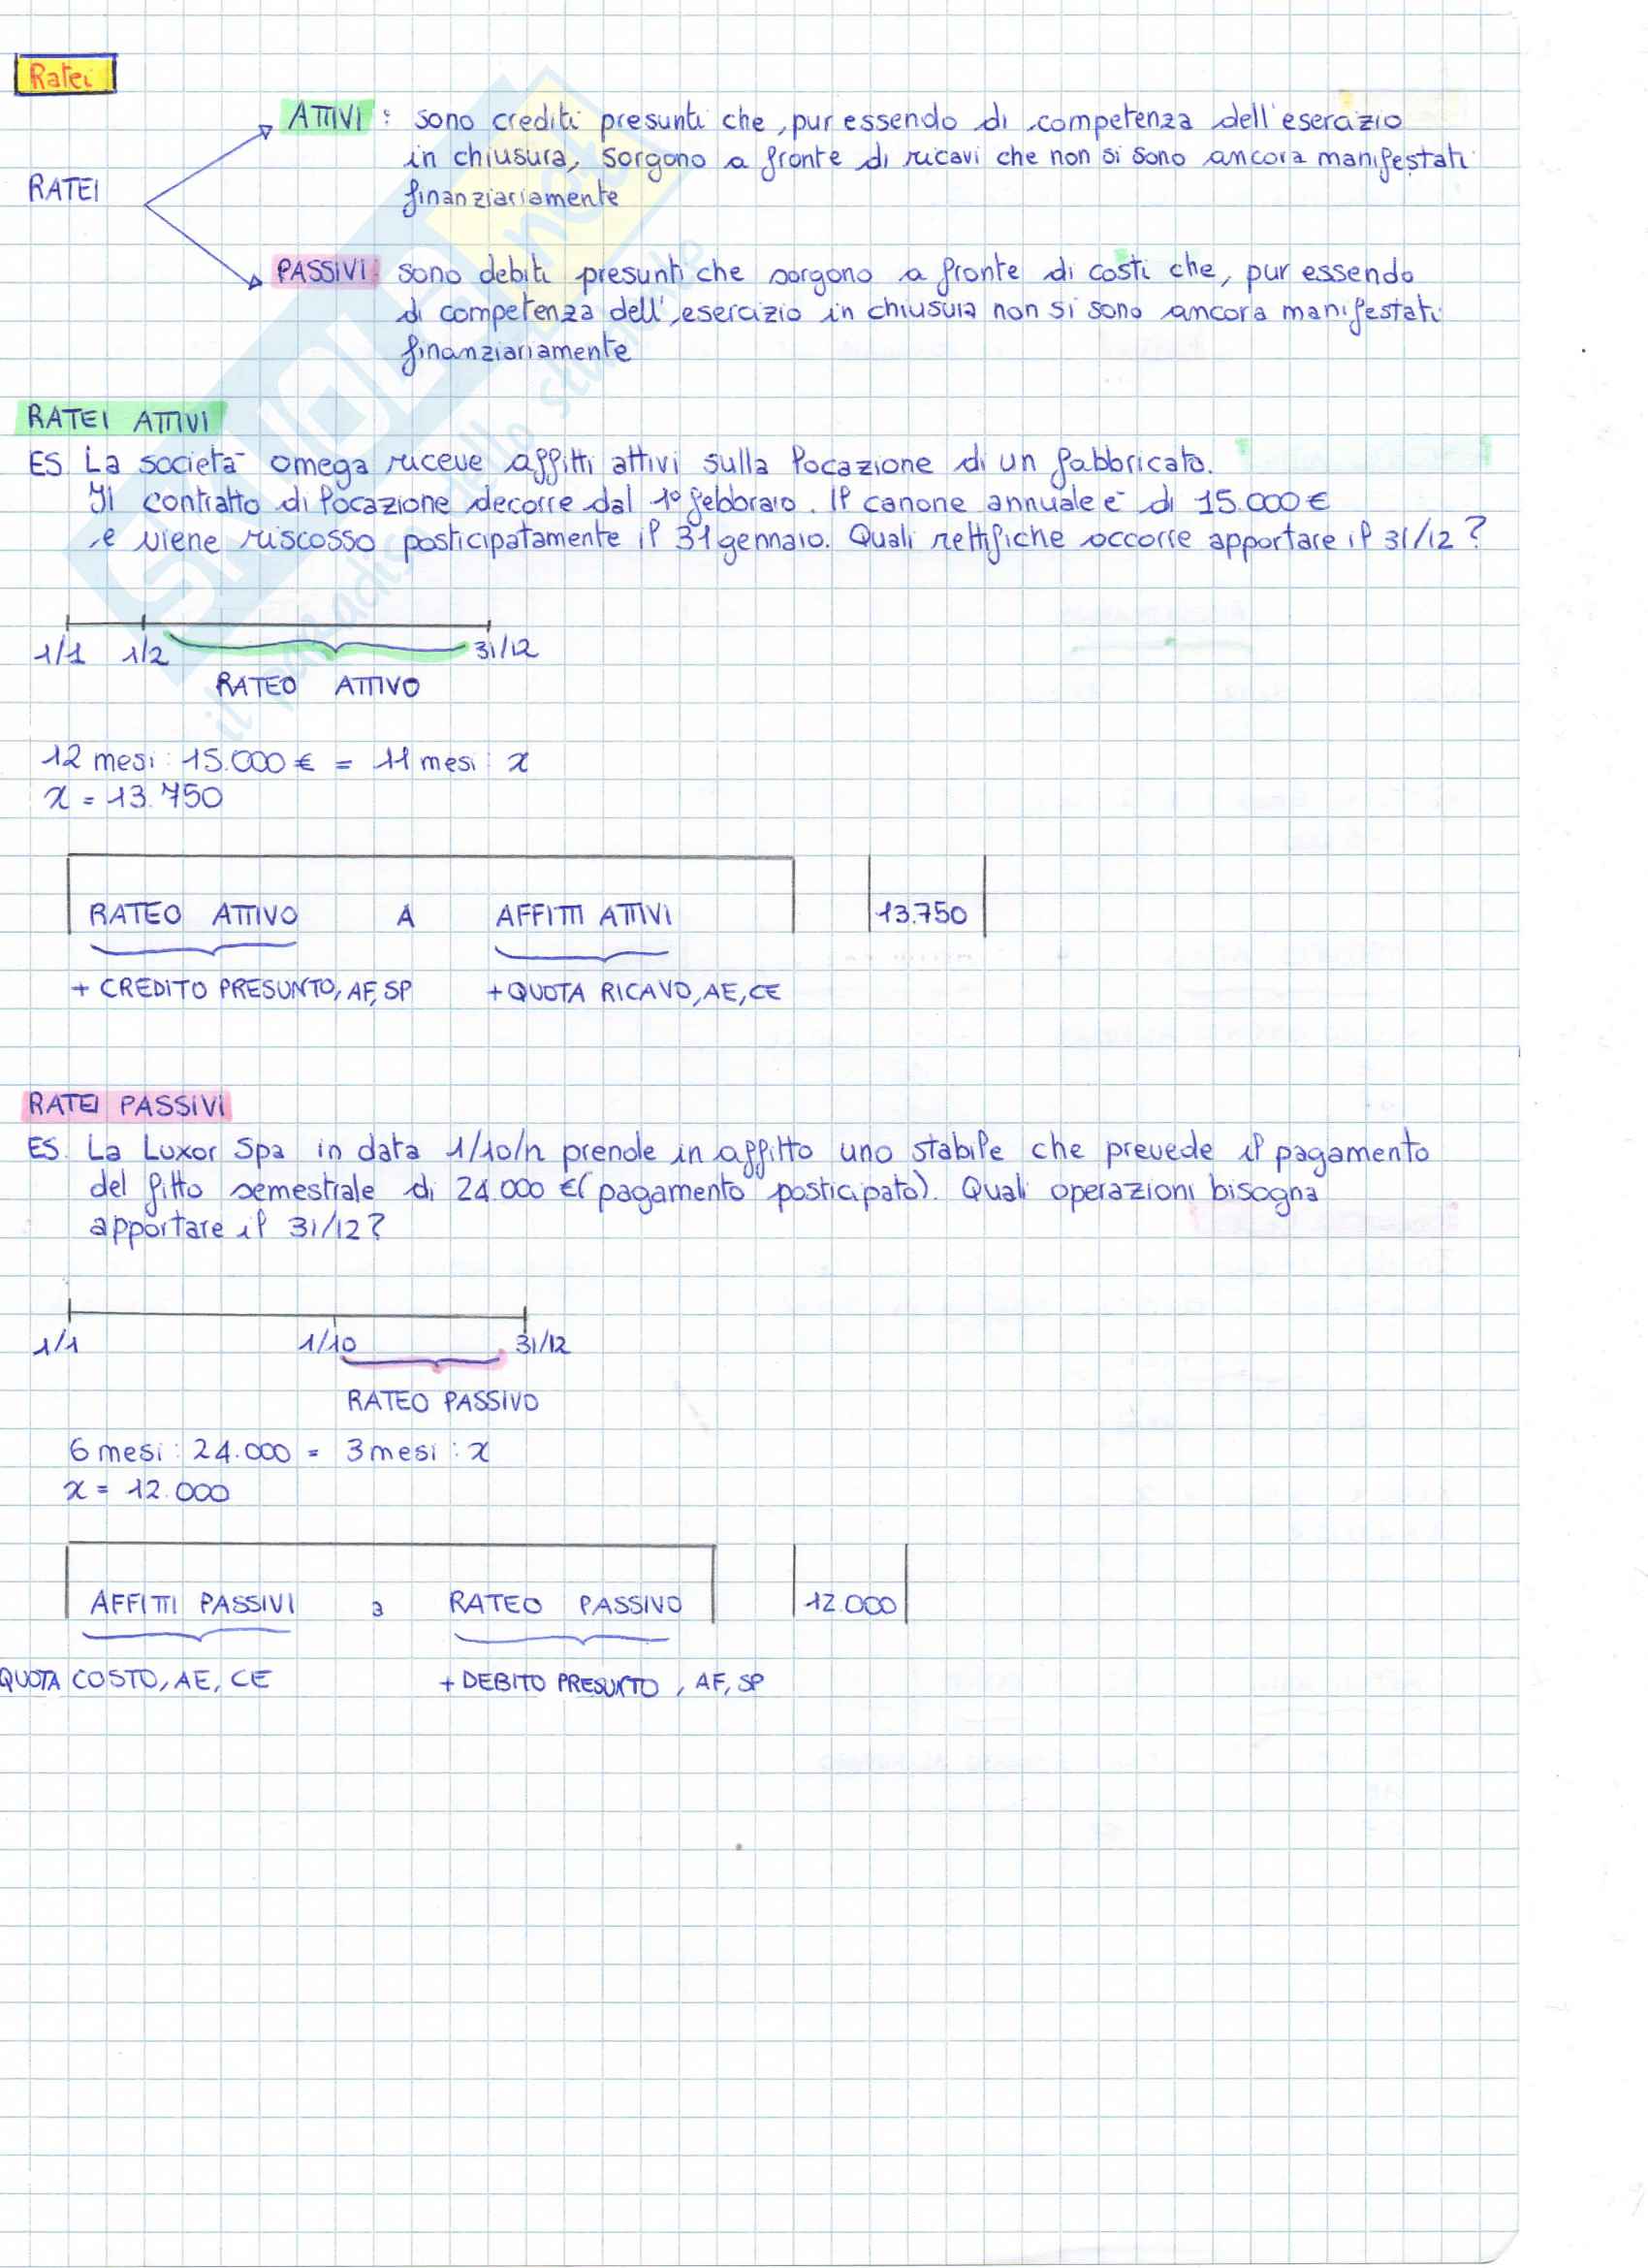 Ratei
ATTIVI : sono crediti presunti che, pur essendo di competenza dell'esercizio
in chiusura, sorgono a fronte di ricavi che non si sono ancora manifestati
RATEI
finanziariamente
PASSIVI: sono debiti presunti che sorgono a fronte di costi che, pur essendo
di competenza dell'esercizio in chiusura non si sono ancora manifestati
finanziariamente
RATEI ATTIVI
ES. La società omega riceve affitti attivi sulla locazione di un fabbricato.
Il contratto di locazione decorre dal 1° febbraio. Il canone annuale è di 15.000 €
e viene riscosso posticipatamente il 31 gennaio. Quali rettifiche occorre apportare il 31/12?
1/1 1/2 31/12
RATEO ATTIVO
12 mesi : 15.000 € = 11 mesi : x
x = 13.750
RATEO ATTIVO A AFFITTI ATTIVI 13.750
+ CREDITO PRESUNTO, AF, SP + QUOTA RICAVO, AE, CE
RATEI PASSIVI
ES. La Luxor Spa in data 1/10/n prende in affitto uno stabile che prevede il pagamento
del fitto semestrale di 24.000 € (pagamento posticipato). Quali operazioni bisogna
apportare il 31/12?
1/1 1/10 31/12
RATEO PASSIVO
6 mesi : 24.000 = 3 mesi : x
x = 12.000
AFFITTI PASSIVI a RATEO PASSIVO 12.000
QUOTA COSTO, AE, CE + DEBITO PRESUNTO, AF, SP
SKUOLA.net
il paradiso dello studente